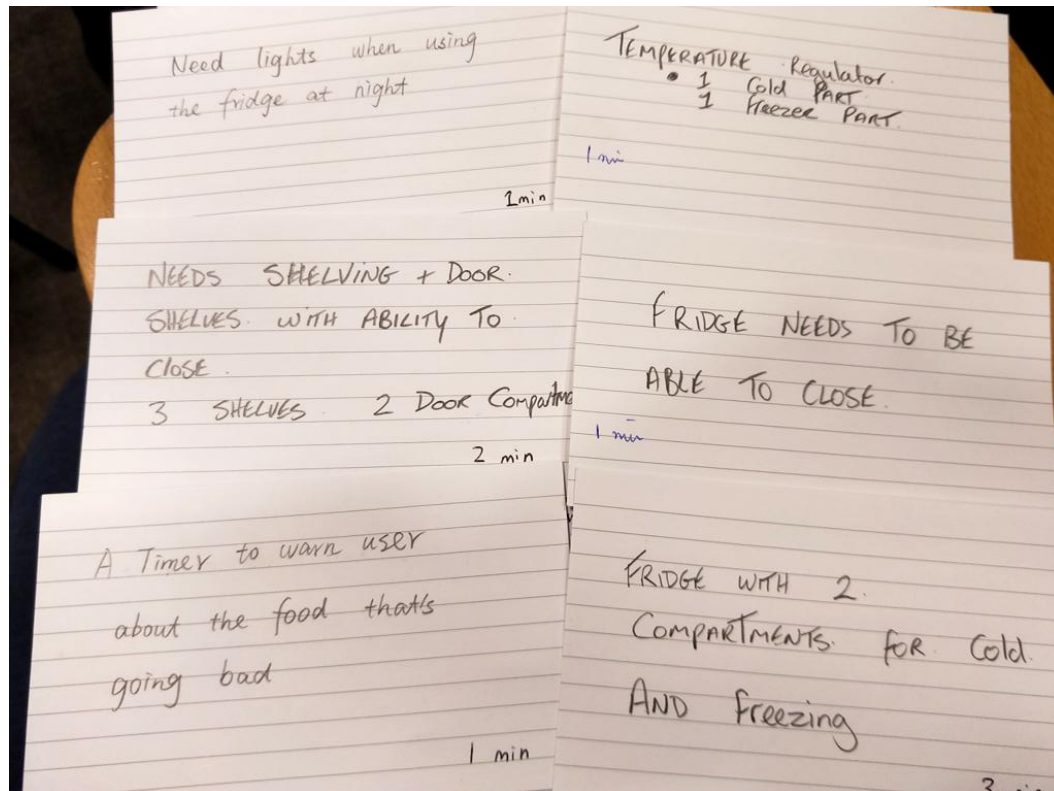 Need lights when using
the fridge at night
1 min
TEMPERATURE Regulator.
• 1 Cold PART
1 Freezer PART.
1 min
NEEDS SHELVING + DOOR.
SHELVES. WITH ABILITY TO
Close.
3 SHELVES 2 Door
2 min
FRIDGE NEEDS TO BE
ABLE TO CLOSE.
1 min
A Timer to warn user
about the food that's
going bad
1 min
FRIDGE WITH 2.
COMPARTMENTS. FOR Cold.
AND Freezing